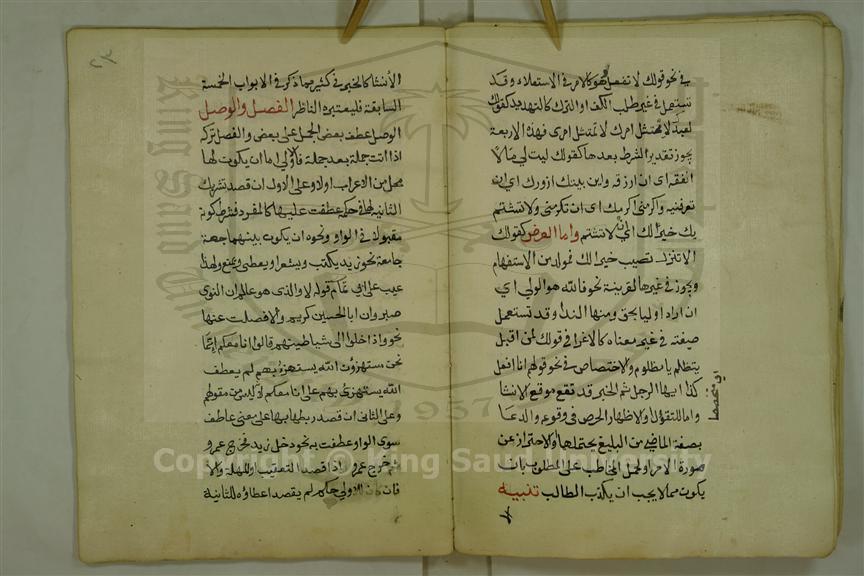 في نحو قولك لا تفعل وهو كالامر في الاستعلاء وقد
تستعمل في غير طلب الكف او الترك كالتهديد كقولك
لعبد لا يمتثل امرك لا تمتثل امرى فهذه الاربعة
يجوز تقدير الشرط بعدها كقولك ليت لي مالا
انفقه اى ان ارزقه واين بيتك ازورك اى ان
تعرفنيه واكرمنى اكرمك اى ان تكرمنى ولا تشتم
يك خيرا لك اى ان لا تشتم واما العرض كقولك
الا تنزل تصيب خيرا لك فمولد من الاستفهام
ويجوز في غيرها لقرينة نحو فالله هو الولي اى
ان اراد اوليا بحق ومنها الندا وقد تستعمل
صيغته في غير معناه كالاغرا في قولك لمن اقبل
يتظلم يا مظلوم والاختصاص في نحو قولهم انا افعل
كذا ايها الرجل ثم الخبر قد تقع موقع الانشا
واما للتفؤل او لاظهار الحرص في وقوعه والدعا
بصفة الماضي من البليغ يحتملها او للاحتراز عن
صورة الامر او لحمل المخاطب على المطلوب بان
يكون ممن لا يجب ان يكذب الطالب تنبيه
الانشا كالخبر في كثير مما ذكر في الابواب الخمسة
السابقة فليعتبره الناظر الفصل والوصل
الوصل عطف بعض الجمل على بعض والفصل تركه
اذا اتت جملة بعد جملة فالاولي اما ان يكون لها
محل من الاعراب او لا وعلى الاول ان قصد تشريك
الثانية لها في حكمه عطفت عليها كالمفرد فشرط كونه
مقبولا في الواو ونحوه ان يكون بينهما جهة
جامعة نحو زيد يكتب ويشعر او يعطى ويمنع ولهذا
عيب على ابي تمام قوله لا والذى هو عالم ان النوى
صبر وان ابا الحسين كريم والا فصلت عنها
نحو واذا خلوا الى شياطينهم قالوا انا معكم انما
نحن مستهزؤن الله يستهزؤ بهم لم يعطف
الله يستهزئ بهم على انا معكم لانه ليس من مقولهم
وعلى الثاني ان قصد ربطها بها على معنى عاطف
سوى الواو عطفت به نحو دخل زيد فخرج عمرو
ثم خرج عمرو اذا قصد التعقيب او المهلة والا
فان كان للاولي حكم لم يقصد اعطاؤه للثانية
٢٣
King Saud University
1957
Copyright © King Saud University